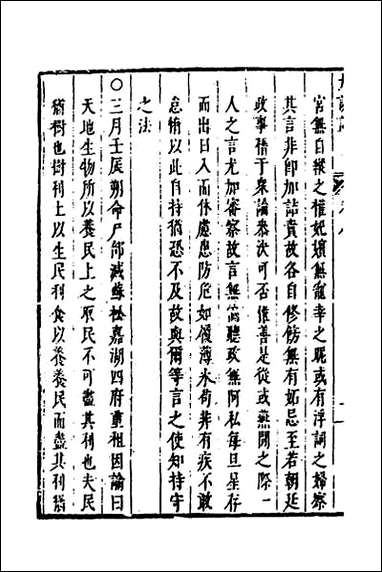 宮無自縱之權妃嬪無寵幸之昵或有浮詞之婦察
其言非即加詰責故各自修飭無有妬忌至若朝廷
政事稽于衆論叅決可否惟善是從或燕閒之際一
人之言尤加審察故言無偏聽政無阿私每旦星存
而出日入而休慮患防危如履薄氷苟非有疾不敢
怠惰以此自持猶恐不及故與爾等言之使知持守
之法
○三月壬辰朔命戶部減蘇松嘉湖四府重租因諭曰
天地生物所以養民上之取民不可盡其利也夫民
猶樹也樹利土以生民利食以養養民而盡其利猶